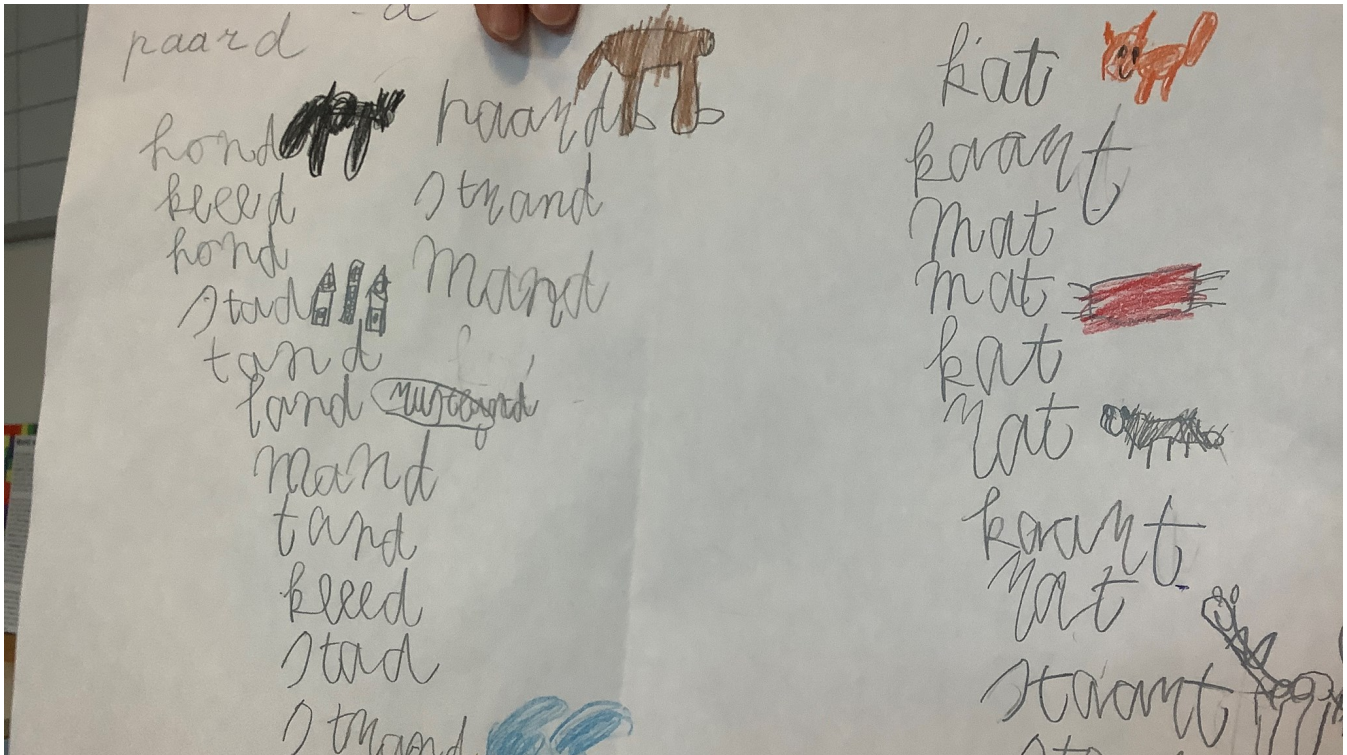 -d
paard
hond
kleed
hond
stad
tand
land
mand
tand
kleed
stad
strand
paard
strand
mand
kat
kaart
mat
mat
kat
rat
kaart
rat
staart